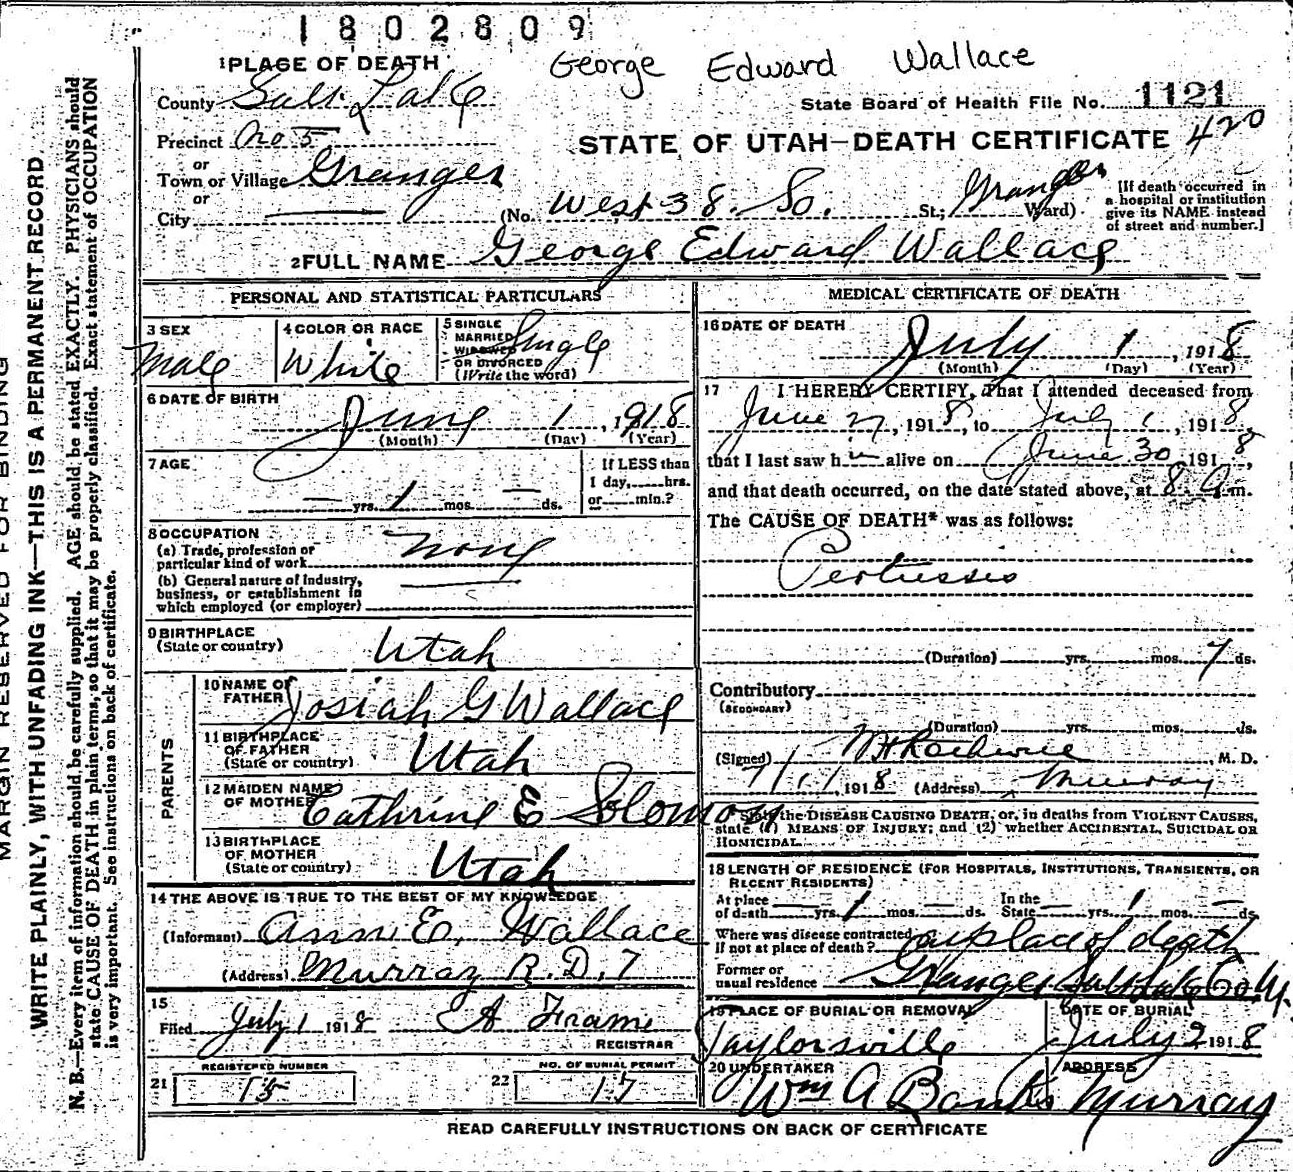 1802809
George Edward Wallace
1 PLACE OF DEATH
County Salt Lake
State Board of Health File No. 1121
Precinct No 5
STATE OF UTAH—DEATH CERTIFICATE 420
or
Town or Village Granger
or
City (No. West 38. So. St.; Granger Ward)
[If death occurred in
a hospital or institution
give its NAME instead
of street and number.]
2 FULL NAME George Edward Wallace
PERSONAL AND STATISTICAL PARTICULARS
3 SEX
Male
4 COLOR OR RACE
White
5 SINGLE
MARRIED
WIDOWED
OR DIVORCED
(Write the word)
Single
6 DATE OF BIRTH
June 1, 1918
(Month) (Day) (Year)
7 AGE
— yrs. 1 mos. — ds.
If LESS than
1 day, hrs.
or min.?
8 OCCUPATION
(a) Trade, profession or
particular kind of work None
(b) General nature of industry,
business, or establishment in
which employed (or employer)
9 BIRTHPLACE
(State or country) Utah
PARENTS
10 NAME OF
FATHER Josiah G Wallace
11 BIRTHPLACE
OF FATHER
(State or country) Utah
12 MAIDEN NAME
OF MOTHER Cathrine E Solomon
13 BIRTHPLACE
OF MOTHER
(State or country) Utah
14 THE ABOVE IS TRUE TO THE BEST OF MY KNOWLEDGE
(Informant) Ann E. Wallace
(Address) Murray R.D. 7
15
Filed July 1 1918 E A Frame
REGISTRAR
21 REGISTERED NUMBER
15
22 NO. OF BURIAL PERMIT
17
MEDICAL CERTIFICATE OF DEATH
16 DATE OF DEATH
July 1, 1918
(Month) (Day) (Year)
17 I HEREBY CERTIFY, That I attended deceased from
June 27, 1918, to July 1, 1918,
that I last saw h im alive on June 30 1918,
and that death occurred, on the date stated above, at 8 a m.
The CAUSE OF DEATH* was as follows:
Pertussis
(Duration) yrs. mos. 7 ds.
Contributory
(SECONDARY)
(Duration) yrs. mos. ds.
(Signed) , M. D.
7/1/ 1918 (Address) Murray
*State the DISEASE CAUSING DEATH, or, in deaths from VIOLENT CAUSES,
state (1) MEANS OF INJURY; and (2) whether ACCIDENTAL, SUICIDAL OR
HOMICIDAL.
18 LENGTH OF RESIDENCE (FOR HOSPITALS, INSTITUTIONS, TRANSIENTS, OR
RECENT RESIDENTS)
At place
of death — yrs. 1 mos. — ds.
In the
State — yrs. 1 mos. — ds.
Where was disease contracted
if not at place of death? at place of death
Former or
usual residence Granger Salt Lake Co. U.
19 PLACE OF BURIAL OR REMOVAL
Taylorsville
DATE OF BURIAL
July 2 1918
20 UNDERTAKER
Wm A Banks
ADDRESS
Murray
READ CAREFULLY INSTRUCTIONS ON BACK OF CERTIFICATE
MARGIN RESERVED FOR BINDING
WRITE PLAINLY, WITH UNFADING INK—THIS IS A PERMANENT RECORD
N. B.—Every item of information should be carefully supplied. AGE should be stated EXACTLY. PHYSICIANS should
state CAUSE OF DEATH in plain terms, so that it may be properly classified. Exact statement of OCCUPATION
is very important. See instructions on back of certificate.